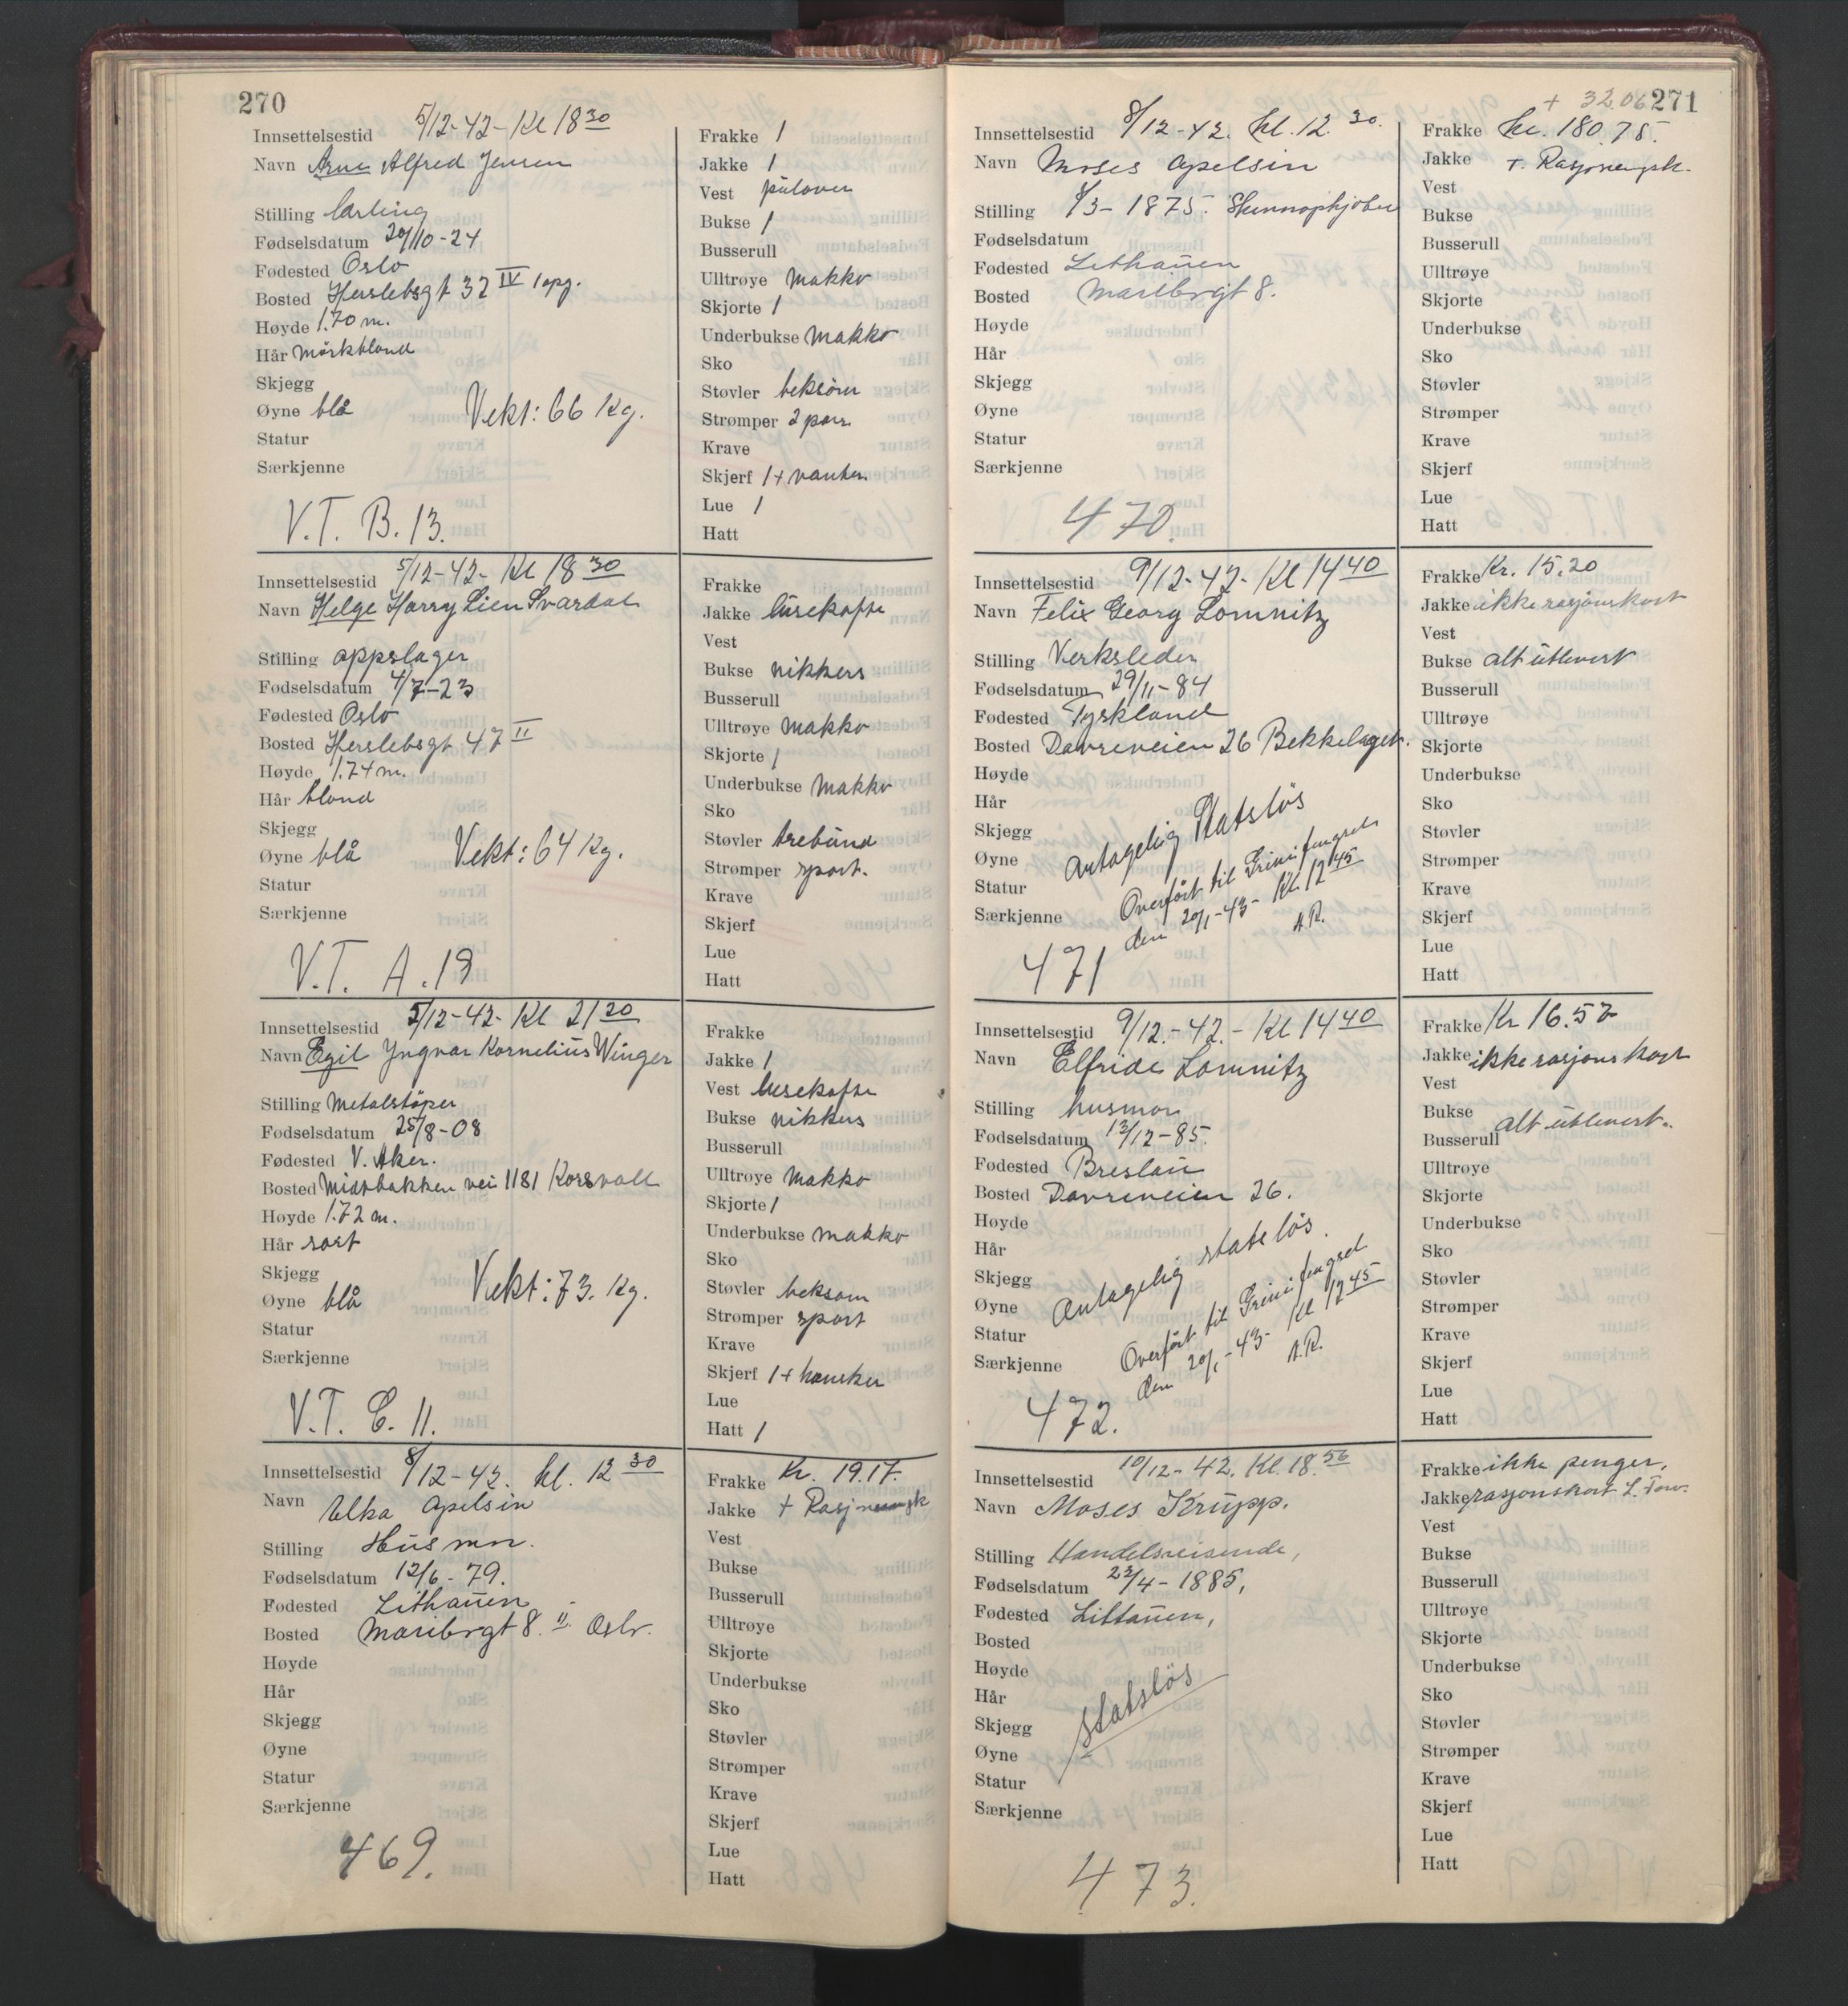 270
Innsettelsestid 5/12-42- Kl 18 30
Navn Arne Alfred Jensen
Stilling lærling
Fødselsdatum 20/10-24
Fødested Oslo
Bosted Herslebsgt 32 IV 1 opg.
Høyde 1.70 m.
Hår mörkblond
Skjegg
Øyne blå Vekt: 66 Kg.
Statur
Særkjenne
V.T. B. 13.
Frakke 1
Jakke 1
Vest pülover
Bukse 1
Busserull
Ulltrøye Makko
Skjorte 1
Underbukse Makko
Sko
Støvler beksöm
Strømper 2 par
Krave
Skjerf 1 + vanter
Lue 1
Hatt
Innsettelsestid 5/12-42- Kl 18 30
Navn Helge Harry Lien Svardal
Stilling oppslager
Fødselsdatum 4/7-23
Fødested Oslo
Bosted Herslebsgt 47 II
Høyde 1.74 m.
Hår blond
Skjegg
Øyne blå Vekt: 64 Kg.
Statur
Særkjenne
V.T. A. 19
Frakke
Jakke lüsekofte
Vest
Bukse nikkers
Busserull
Ulltrøye Makko
Skjorte 1
Underbukse Makko
Sko
Støvler trebünd
Strømper sport.
Krave
Skjerf
Lue
Hatt
Innsettelsestid 5/12-42- Kl 21 20
Navn Egil Yngvar Kornelius Winger
Stilling Metalstöper
Fødselsdatum 25/8-08
Fødested V. Aker.
Bosted Midtbakken vei 1181 Korsvoll
Høyde 1.72 m.
Hår sort
Skjegg
Øyne blå Vekt: 73. Kg.
Statur
Særkjenne
V.T. C. 11.
Frakke
Jakke 1
Vest lusekofte
Bukse nikkers
Busserull
Ulltrøye Makko
Skjorte 1
Underbukse makko
Sko
Støvler beksöm
Strømper sport
Krave
Skjerf 1 + hansker
Lue
Hatt 1
Innsettelsestid 8/12-42. kl. 12 30
Navn Elka Apelsin
Stilling Hüsmor.
Fødselsdatum 12/6-79.
Fødested Lithaüen
Bosted Maribogt 8. II. Oslo.
Høyde
Hår
Skjegg
Øyne
Statur
Særkjenne
469.
Frakke Kr. 19.17.
Jakke + Rasjoneringsk
Vest
Bukse
Busserull
Ulltrøye
Skjorte
Underbukse
Sko
Støvler
Strømper
Krave
Skjerf
Lue
Hatt
+ 32.06 271
Innsettelsestid 8/12-42. kl. 12. 30.
Navn Moses Apelsin
Stilling 8/3-1875. Skinnopkjöber
Fødselsdatum
Fødested Lithaüen
Bosted Maribogt 8.
Høyde
Hår
Skjegg
Øyne
Statur
Særkjenne
470.
Frakke kr. 180.75.
Jakke + Rasjoneringsk.
Vest
Bukse
Busserull
Ulltrøye
Skjorte
Underbukse
Sko
Støvler
Strømper
Krave
Skjerf
Lue
Hatt
Innsettelsestid 9/12-42- Kl 14 40
Navn Felix Georg Lomnitz
Stilling Verksleder
Fødselsdatum 29/11-84
Fødested Tyskland
Bosted Dovreveien 26 Bekkelaget.
Høyde
Hår
Skjegg
Øyne Antagelig Statslös
Statur
Særkjenne Overfört til Grini fengsel
den 20/1-43- Kl. 12 45
A.R.
471
Frakke Kr. 15.20
Jakke ikke rasjonskort
Vest
Bukse alt ütlevert
Busserull
Ulltrøye
Skjorte
Underbukse
Sko
Støvler
Strømper
Krave
Skjerf
Lue
Hatt
Innsettelsestid 9/12.-42.- Kl 14 40
Navn Elfride Lomnitz
Stilling husmor
Fødselsdatum 13/12-85.
Fødested Breslaü
Bosted Dovreveien 26.
Høyde
Hår
Skjegg
Øyne Antagelig statslös.
Statur
Særkjenne Overfört til Grini fengsel
den 20/1-43- Kl 12 45
A.R.
472.
Frakke Kr 16.57
Jakke ikke rasjonskort
Vest
Bukse alt ütlevert.
Busserull
Ulltrøye
Skjorte
Underbukse
Sko
Støvler
Strømper
Krave
Skjerf
Lue
Hatt
Innsettelsestid 10/12-42. Kl. 18. 56
Navn Moses Krüpp.
Stilling Handelsreisende,
Fødselsdatum 23/4-1885,
Fødested Littaüen,
Bosted
Høyde
Hår
Skjegg statslös
Øyne
Statur
Særkjenne
473.
Frakke ikke penger,
Jakke rasjonskort
Vest
Bukse
Busserull
Ulltrøye
Skjorte
Underbukse
Sko
Støvler
Strømper
Krave
Skjerf
Lue
Hatt